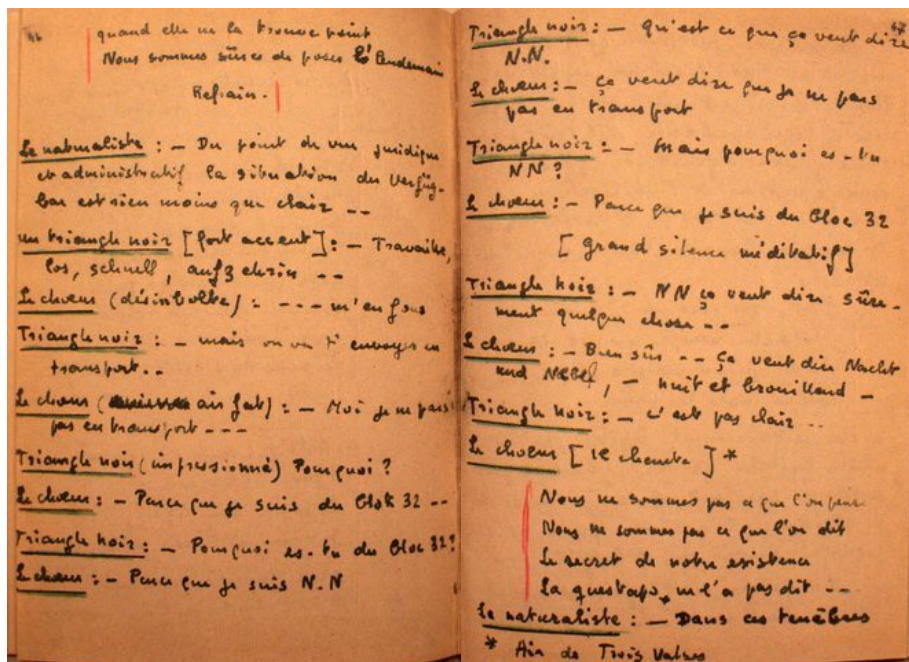 46
quand elle ne la trouve point
Nous sommes sûres de poser le lendemain
Refrain.
Le naturaliste : — Du point de vue juridique
et administratif la situation du Verfüg-
bar est rien moins que clair --
un triangle noir [fort accent] : — Travailler,
los, schnell, aufzehrin --
Le chœur (désinvolte) : --- m'en fous
Triangle noir : — mais on va t'envoyer en
transport..
Le chœur ( air fat) : — Moi je ne pars
pas en transport ---
Triangle noir (impressionné) Pourquoi ?
Le chœur : — Parce que je suis du Block 32 --
Triangle noir : — Pourquoi es-tu du Bloc 32 ?
Le chœur : — Parce que je suis N.N
47
Triangle noir : — qu'est ce que ça veut dire
N.N.
Le chœur : — ça veut dire que je ne pars
pas en transport
Triangle noir : — Mais pourquoi es-tu
NN ?
Le chœur : — Parce que je suis du Bloc 32
[grand silence méditatif]
Triangle noir : — NN ça veut dire sûre-
ment quelque chose --
Le chœur : — Bien sûr -- ça veut dire Nacht
und Nebel, — nuit et brouillard —
Triangle noir : — c'est pas clair ..
Le chœur [il chante] *
Nous ne sommes pas ce que l'on pense
Nous ne sommes pas ce que l'on dit
Le secret de notre existence
La questapo ne l'a pas dit --
Le naturaliste : — Dans ces tenèbres
* Air de Trois Valses